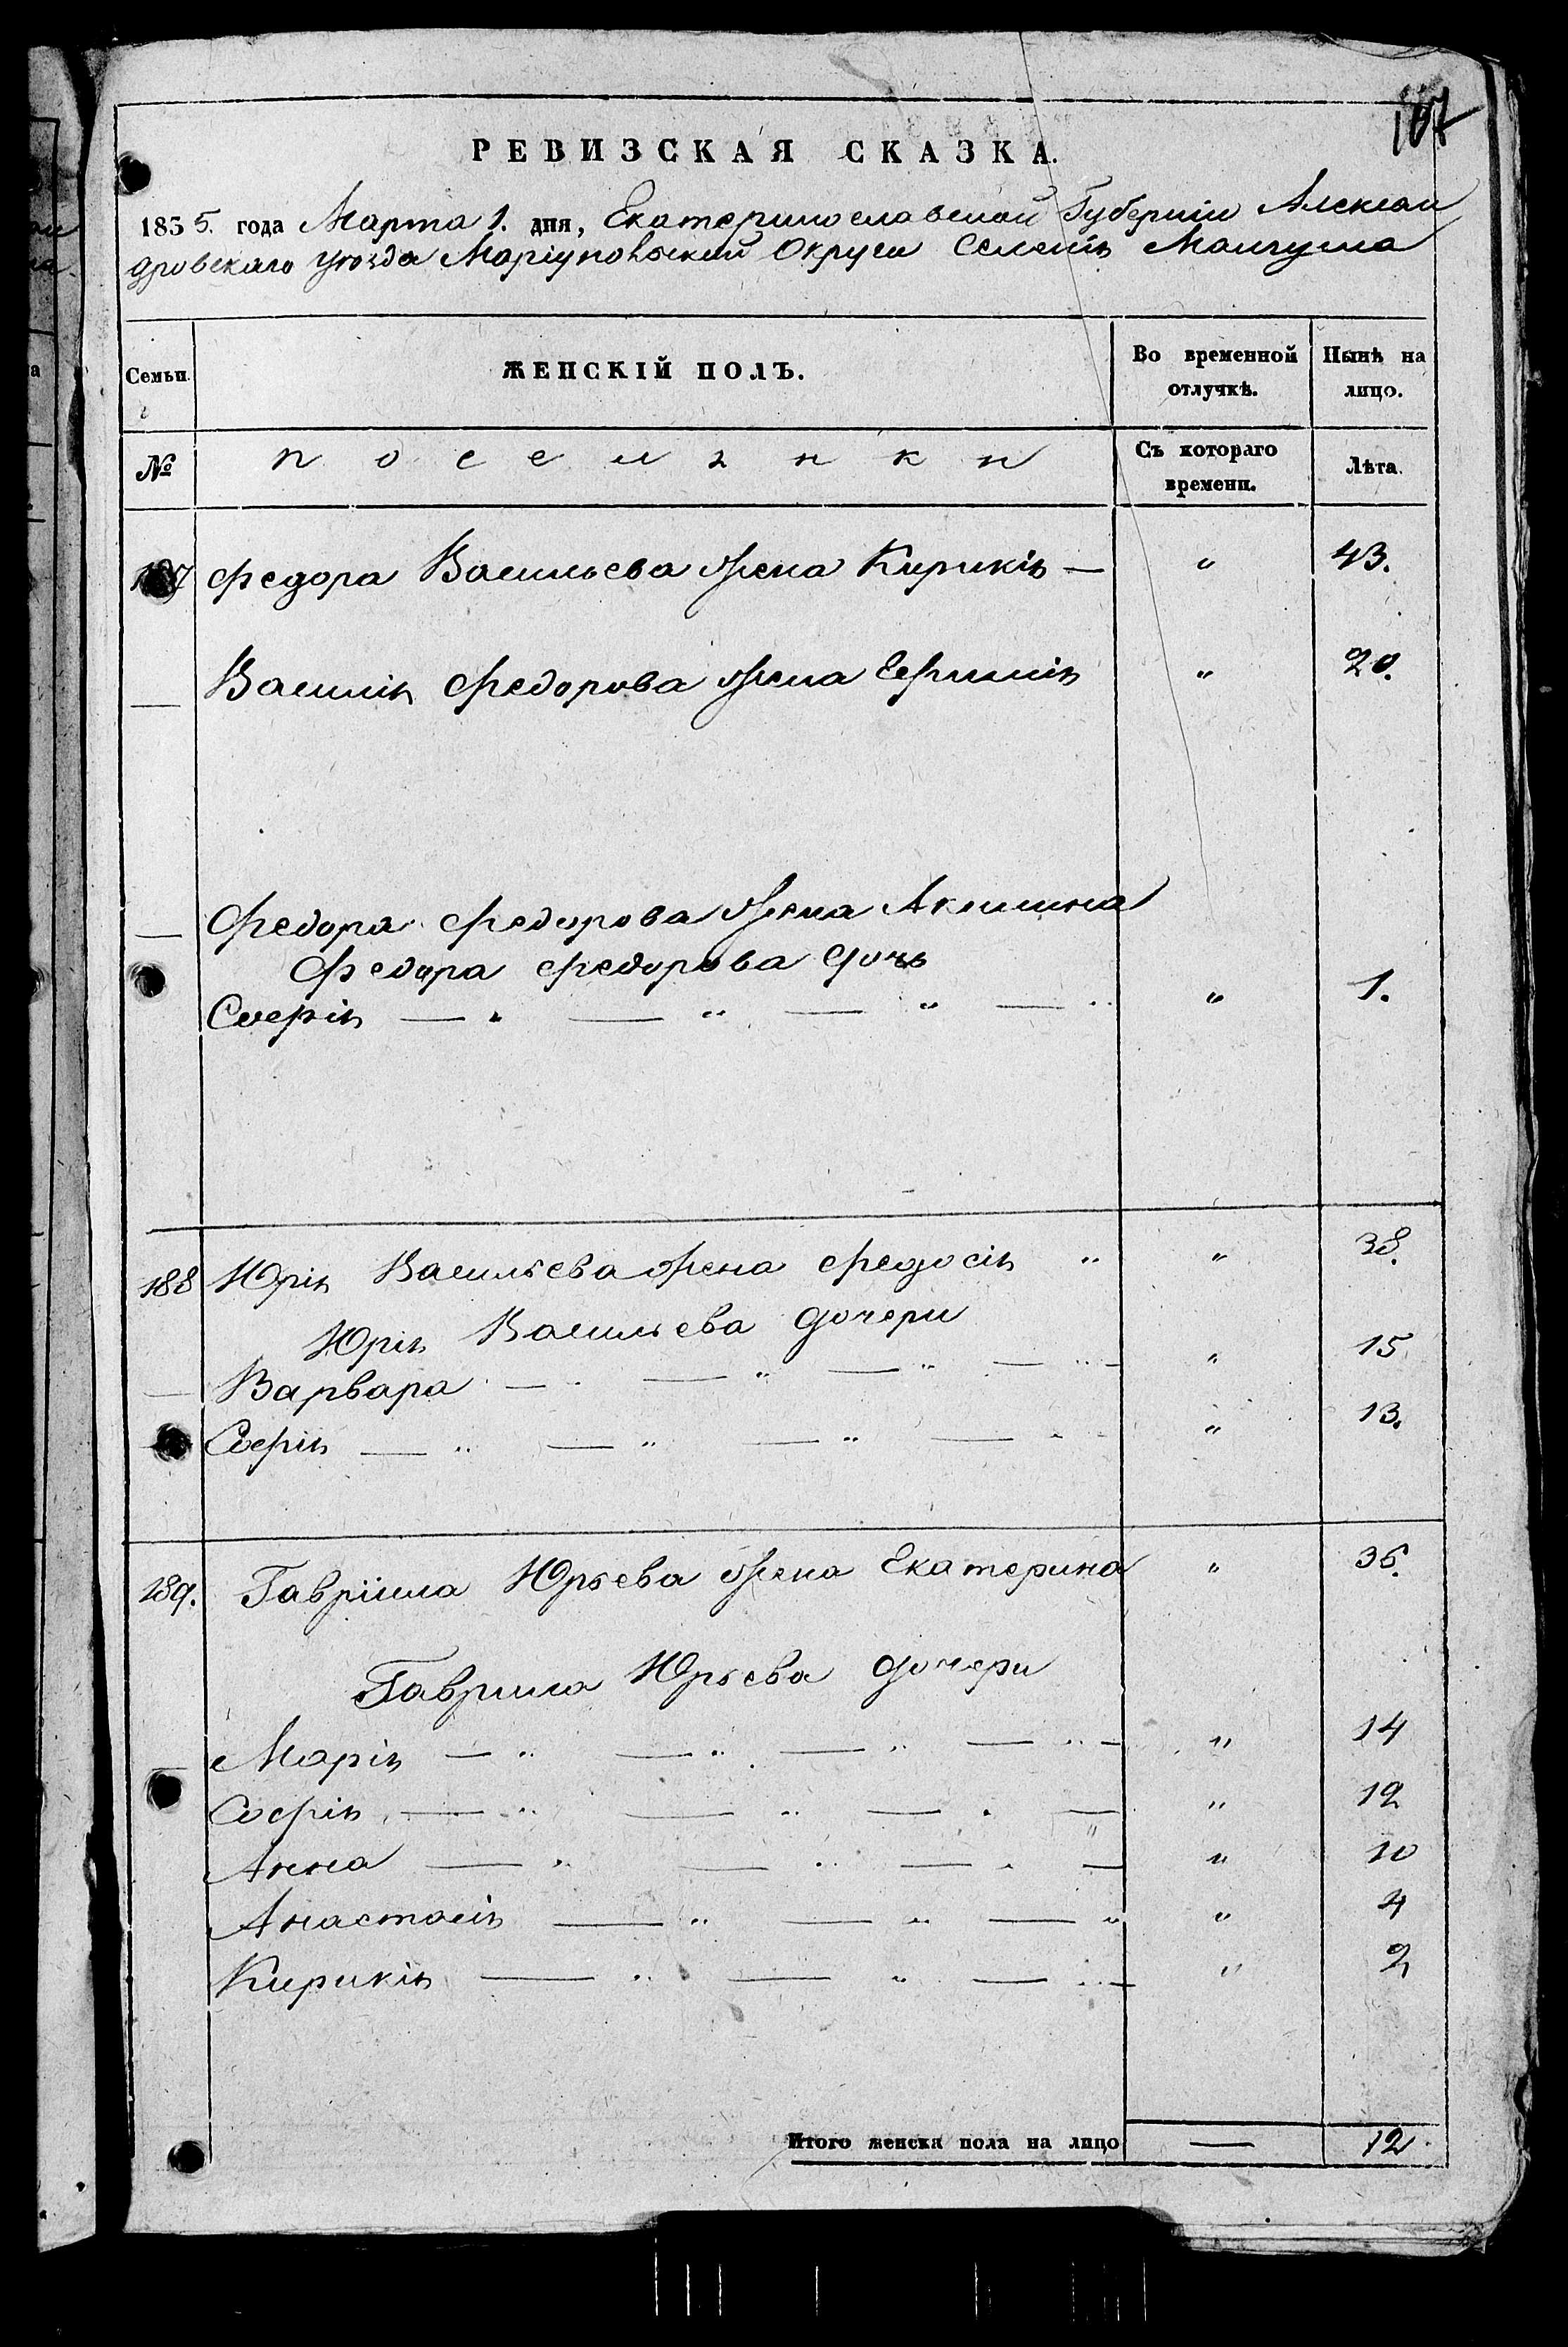 107
РЕВИЗСКАЯ СКАЗКА.
1855. года Марта 1. дня, Екатеринославской Губернии Алексан
дровскаго уѣзда Маріупольской Округи Селенія Мангуша
Семьи.
ЖЕНСКІЙ ПОЛЪ.
Во временной отлучкѣ.
Нынѣ на лицо.
№
поселянки
Съ котораго времени.
Лѣта.
187 Федора Васильева жена Кирикія — " 43.
— Василія Федорова жена Ефимія " 20.
— Федора Федорова жена Акилина
Федора Федорова дочь
Софія — " — " — " — " " 1.
188 Юрія Васильева жена Федосія " " 38.
Юрія Васильева дочери
— Варвара — " — " — " — " — " 15
Софія — " — " — " — " " 13.
189. Гавріила Юрьева жена Екатерина " 36.
Гаврила Юрьева дочери
— Марія — " — " — " — " — " 14
Софія — " — " — " — " " 12
Анна — " — " — " — " 10
Анастасія — " — " — " " 4
Кирикія — " — " — " — " 2
Итого женска пола на лицо — 12